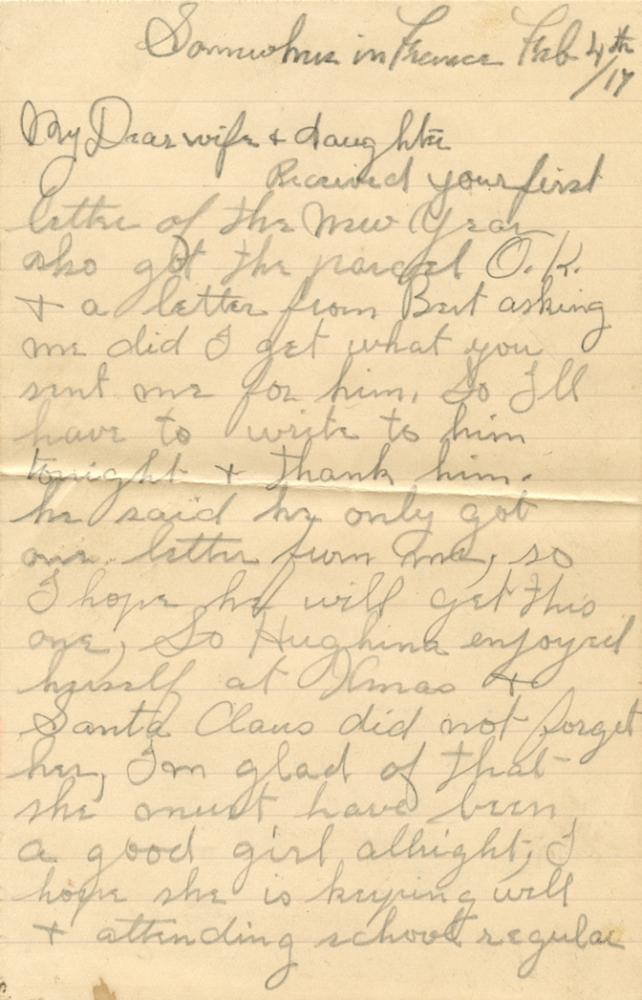 Somewhere in France Feb 4th
/17
My Dear wife & daughter
Received your first
letter of the New Year
also got the parcel O.K.
& a letter from Bert asking
me did I get what you
sent me for him. So I'll
have to write to him
tonight & thank him.
he said he only got
one letter from me, so
I hope he will get this
one, So Hughina enjoyed
herself at Xmas &
Santa Claus did not forget
her, I'm glad of that
she must have been
a good girl allright, I
hope she is keeping well
& attending school regular